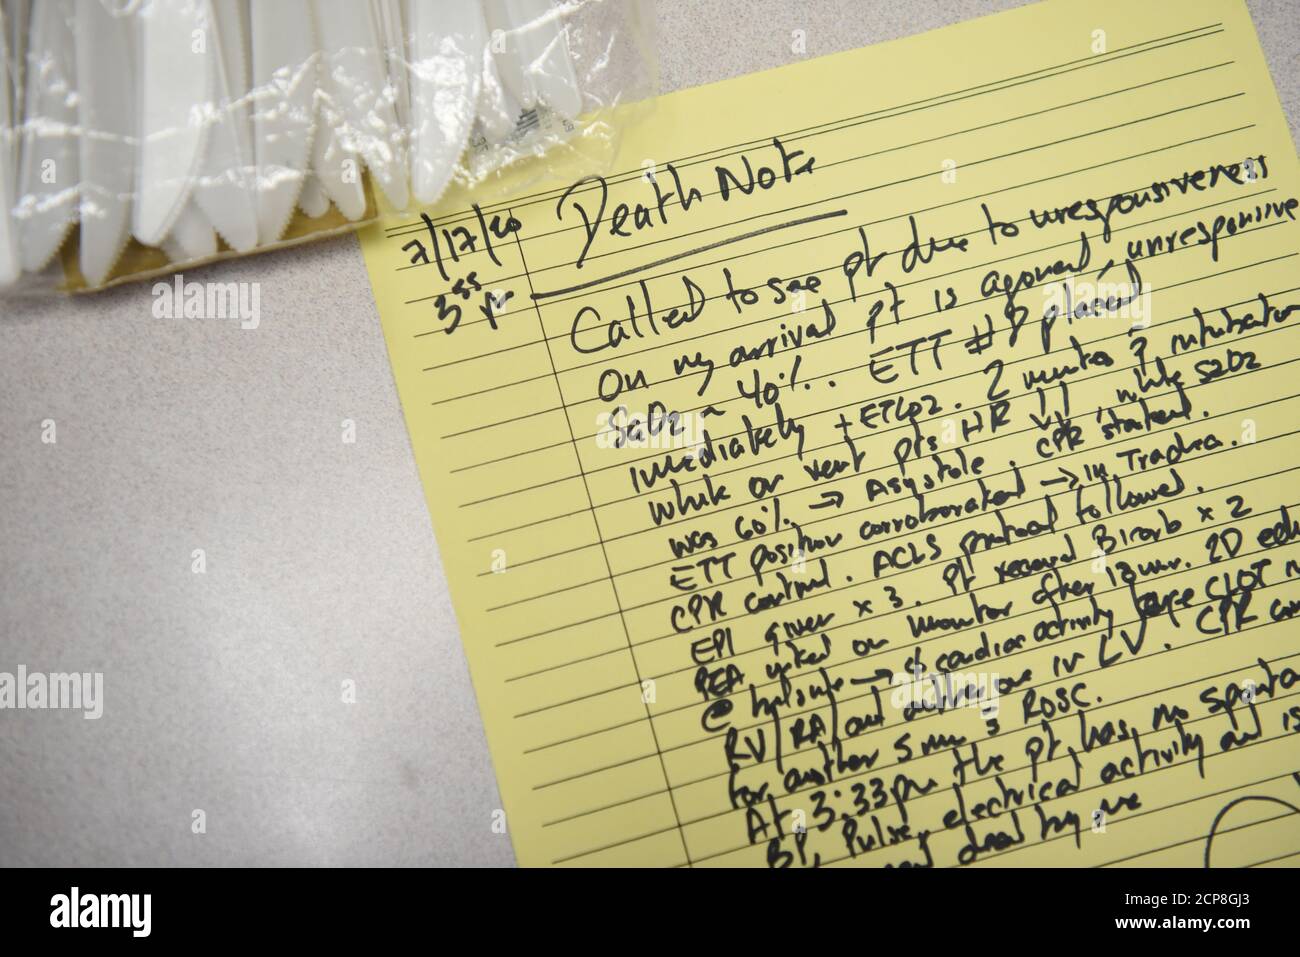 7/17/20
3⁵⁵ pm
Death Note
Called to see pt due to unresponsiveness
On my arrival pt is agonal, unresponsive
SaO2 ~ 40%. ETT #8 placed
immediately +ETCO2. 2 minutes intubation
while on vent pts HR ↓↓, while SaO2
was 60% → Asystole. CPR started.
ETT position corroborated → in Trachea.
CPR continued. ACLS protocol followed.
EPI given x 3. pt received Bicarb x 2
PEA noted on monitor after 12 min. 2D
@ → cardiac activity large CLOT
RV/RA/and another one in LV. CPR
for another 5 min ROSC.
At 3:33pm the pt has no
BP, Pulse, electrical activity and is
dead by me
alamy
alamy
Image ID: 2CP8GJ3
www.alamy.com